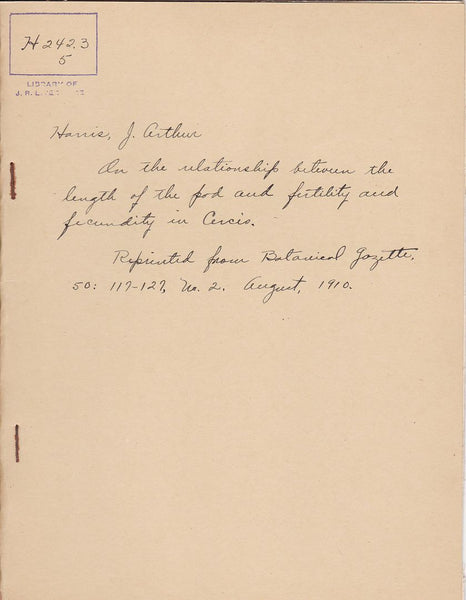 H 242.3
5
LIBRARY OF
J. R. L.
Harris, J. Arthur
On the relationship between the
length of the pod and fertility and
fecundity in Cercis.
Reprinted from Botanical Gazette.
50: 117-127, No. 2. August, 1910.